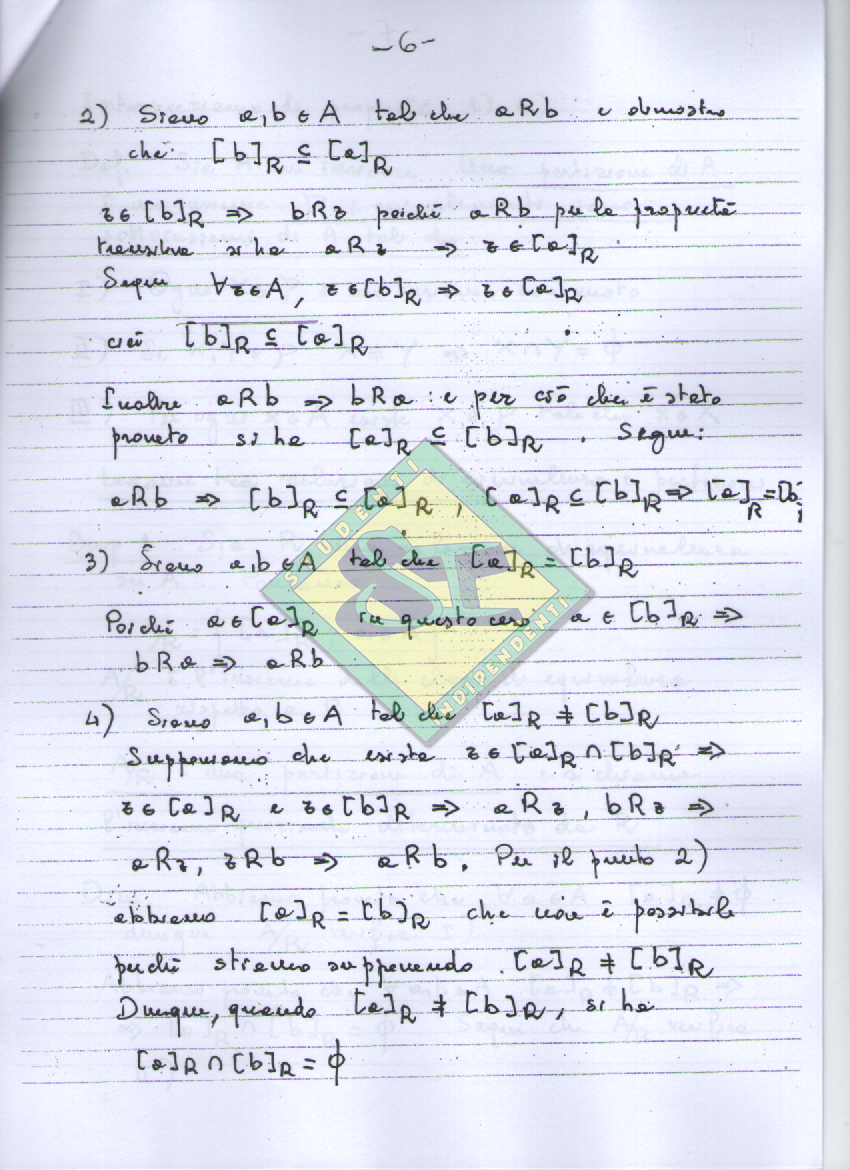 -6-
2) Siano a,b ∈ A tal che aRb e dimostro
che [b]R ⊆ [a]R
z ∈ [b]R ⇒ bRz poiché aRb per la proprietà
transitiva si ha aRz ⇒ z ∈ [a]R
Segue ∀z∈A, z∈[b]R ⇒ z∈[a]R
cioè [b]R ⊆ [a]R
Inoltre aRb ⇒ bRa : e per ciò che è stato
provato si ha [a]R ⊆ [b]R . Segue:
aRb ⇒ [b]R ⊆ [a]R , [a]R ⊆ [b]R ⇒ [a]R = [b]
3) Siano a,b ∈ A tal che [a]R = [b]R
Poiché a ∈ [a]R in questo caso a ∈ [b]R ⇒
bRa ⇒ aRb
4) Siano a,b ∈ A tal che [a]R ≠ [b]R
Supponiamo che esista z ∈ [a]R ∩ [b]R ⇒
z ∈ [a]R e z ∈ [b]R ⇒ aRz , bRz ⇒
aRz, zRb ⇒ aRb. Per il punto 2)
abbiamo [a]R = [b]R che non è possibile
perché stiamo supponendo [a]R ≠ [b]R
Dunque, quando [a]R ≠ [b]R, si ha
[a]R ∩ [b]R = ϕ
STUDENTI
INDIPENDENTI